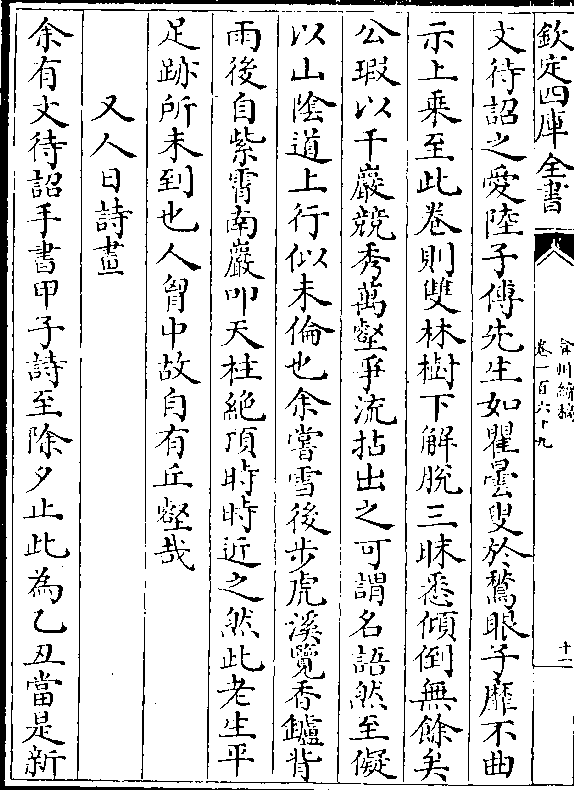 欽定四庫全書
弇州續稿
卷一百六十九
十一
文待詔之愛陸子傅先生如瞿曇叟於鶖眼子靡不曲
示上乗至此卷則雙林樹下解脫三昧悉傾倒無餘矣
公瑕以千巖競秀萬壑爭流拈出之可謂名語然至儗
以山陰道上行似未倫也余嘗雪後步虎溪覽香鑪背
雨後自紫霄南巖叩天柱絶頂時時近之然此老生平
足跡所未到也人胷中故自有丘壑哉
又人日詩畫
余有文待詔手書甲子詩至除夕止此為乙丑當是新